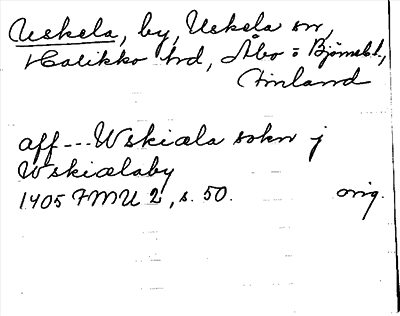 Uskela, by, Uskela sn,
Halikko hd, Åbo = Björnebl.,
Finland
aff --- Wskiæla sokn j
Wskiælaby
1405 FMU 2, s. 50. orig.